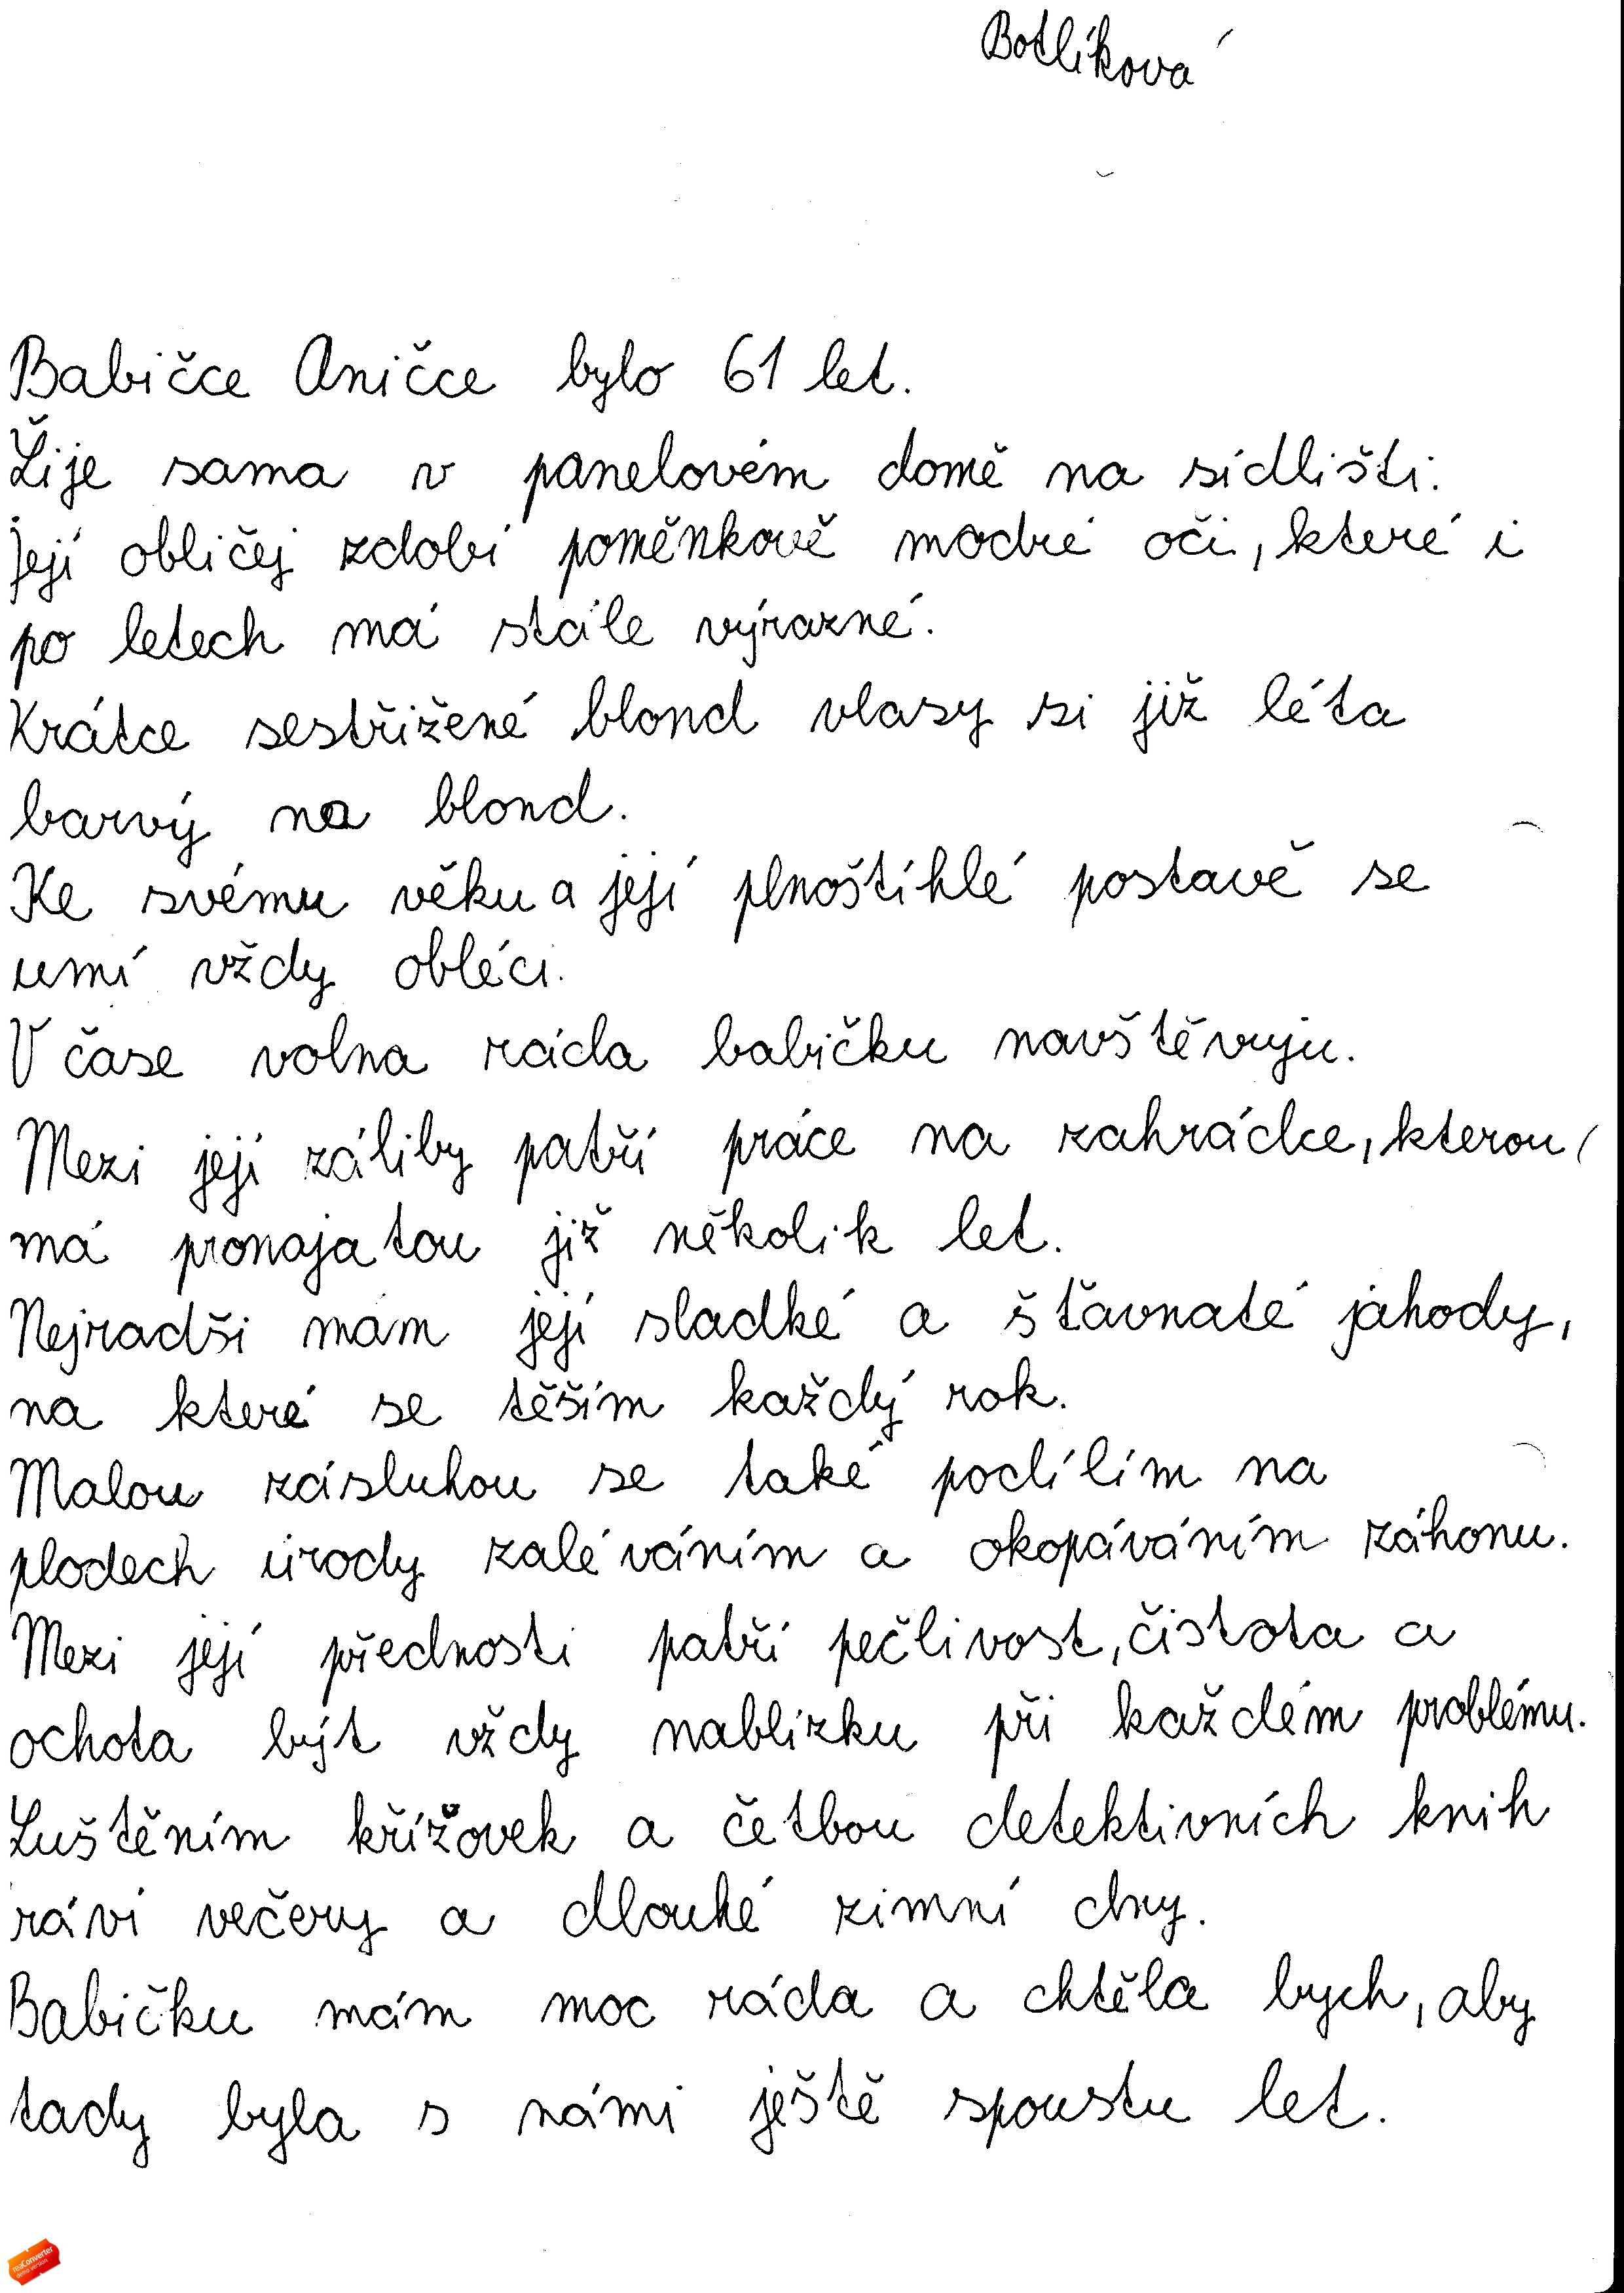 Botlíková
Babičce Aničce bylo 61 let.
Žije sama v panelovém domě na sídlišti.
Její obličej zdobí poměnkově modré oči, které i
po letech má stále výrazné.
Krátce sestřižené blond vlasy si již léta
barvý na blond.
Ke svému věku a její plnoštíhlé postavě se
umí vždy obléci.
V čase volna ráda babičku navštěvuju.
Mezi její záliby patří práce na zahrádce, kterou
má pronajatou již několik let.
Nejradši mám její sladké a šťavnaté jahody,
na které se těším každý rok.
Malou zásluhou se také podílím na
plodech úrody zaléváním a okopáváním záhonu.
Mezi její přednosti patří pečlivost, čistota a
ochota být vždy nablízku při každém problému.
Luštěním křížovek a četbou detektivních knih
ráví večery a dlouhé zimní dny.
Babičku mám moc ráda a chtěla bych, aby
tady byla s námi ještě spoustu let.
reaConverter
demo version